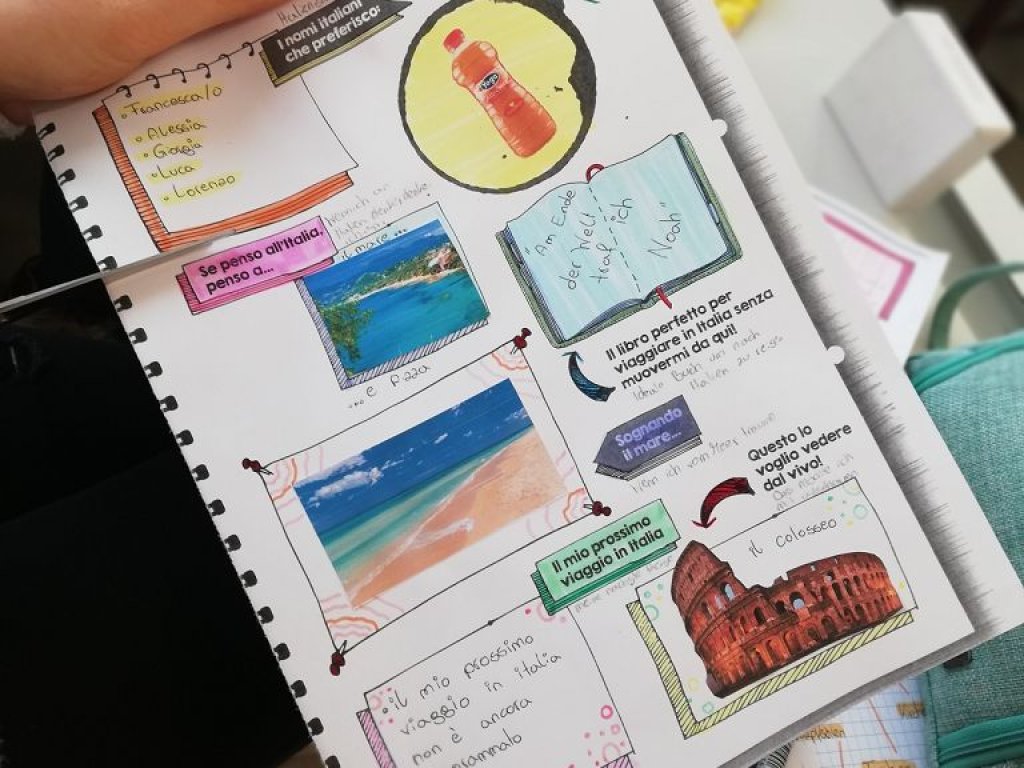 I nomi italiani
che preferisco:
Francesca/o
Alessia
Giorgia
Luca
Lorenzo
Yoga
Se penso all'Italia,
penso a...
il mare...
... e pizza
"Am Ende
der Welt
traf ich
Noah"
Il libro perfetto per
viaggiare in Italia senza
muovermi da qui!
Ideale Buch um nach
Italien zu
Sognando
il mare...
Wenn ich vom Meer träume
Questo lo
voglio vedere
dal vivo!
Das möchte ich
il colosseo
Il mio prossimo
viaggio in Italia
meine nächste
il mio prossimo
viaggio in italia
non è ancora